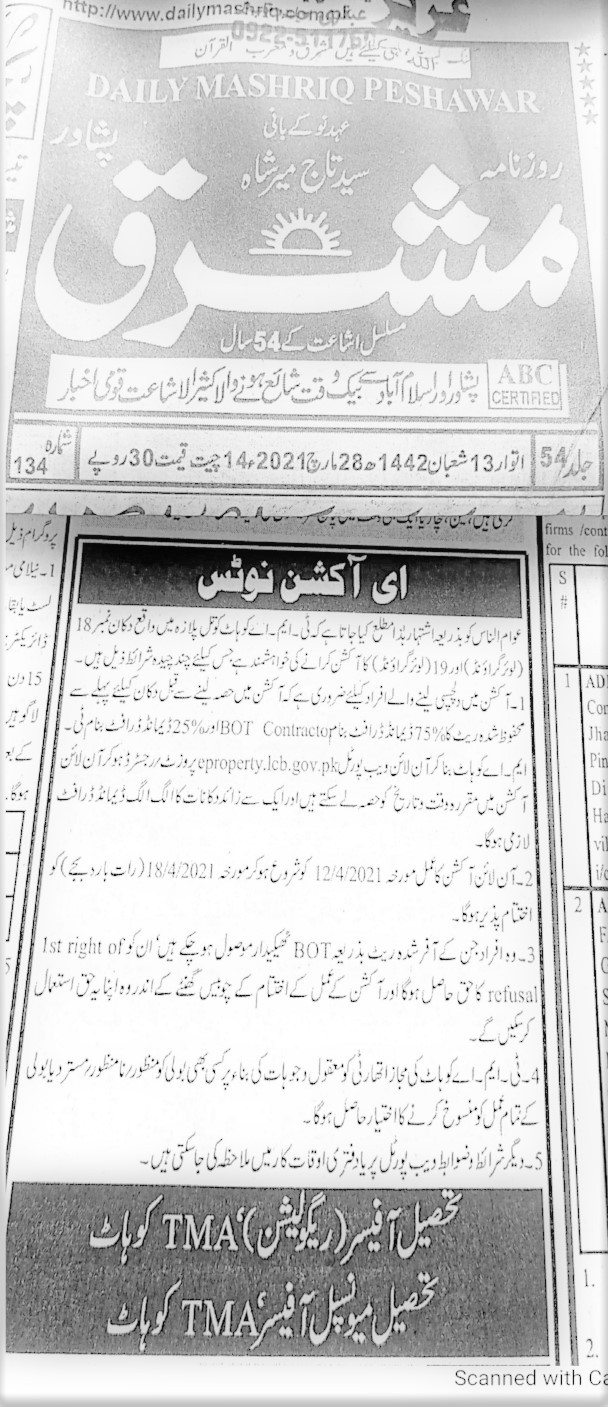 http://www.dailymashriq.com.pk
DAILY MASHRIQ PESHAWAR
عہد نو کے بانی
سید تاج میر شاہ
روزنامہ
پشاور
مشرق
مسلسل اشاعت کے 54 سال
پشاور اور اسلام آباد سے بیک وقت شائع ہونے والا کثیر الاشاعت قومی اخبار
ABC
CERTIFIED
جلد 54
اتوار 13 شعبان 1442ھ 28 مارچ 2021ء 14 چیت قیمت 30 روپے
شمارہ
134
ای آکشن نوٹس
عوام الناس کو بذریعہ اشتہار ہذا مطلع کیا جاتا ہے کہ ٹی۔ایم۔اے کوہاٹ کوتل پلازہ میں واقع دکان نمبر 18
(لوئر گراؤنڈ) اور 19 (لوئر گراؤنڈ) کا آکشن کرانے کی خواہشمند ہے جس کیلئے چند چیدہ شرائط ذیل ہیں۔
1۔ آکشن میں دلچسپی لینے والے افراد کیلئے ضروری ہے کہ آکشن میں حصہ لینے سے قبل دکان کیلئے پہلے سے
محفوظ شدہ ریٹ کا 75% ڈیمانڈ ڈرافٹ بنام BOT Contractor اور 25% ڈیمانڈ ڈرافٹ بنام ٹی۔
ایم۔اے کوہاٹ بنا کر آن لائن ویب پورٹل eproperty.lcb.gov.pk پر وزٹ/رجسٹرڈ ہو کر آن لائن
آکشن میں مقررہ وقت و تاریخ کو حصہ لے سکتے ہیں اور ایک سے زائد دکانات کا الگ الگ ڈیمانڈ ڈرافٹ
لازمی ہوگا۔
2۔ آن لائن آکشن کا عمل مورخہ 12/4/2021 کو شروع ہو کر مورخہ 18/4/2021 (رات بارہ بجے) کو
اختتام پذیر ہوگا۔
3۔ وہ افراد جن کے آفر شدہ ریٹ بذریعہ BOT ٹھیکیدار موصول ہو چکے ہیں' ان کو 1st right of
refusal کا حق حاصل ہوگا اور آکشن کے عمل کے اختتام کے چوبیس گھنٹے کے اندر وہ اپنا یہ حق استعمال
کر سکیں گے۔
4۔ ٹی۔ایم۔اے کوہاٹ کی مجاز اتھارٹی کو معقول وجوہات کی بناء پر کسی بھی بولی کو منظور/نامنظور/مسترد یا بولی
کے تمام عمل کو منسوخ کرنے کا اختیار حاصل ہوگا۔
5۔ دیگر شرائط و ضوابط ویب پورٹل پر یا دفتری اوقات کار میں ملاحظہ کی جا سکتی ہیں۔
تحصیل آفیسر (ریگولیشن)' TMA کوہاٹ
تحصیل میونسپل آفیسر' TMA کوہاٹ
firms /cont
for the fol
S
#
1
2
1.
2.
Scanned with Ca